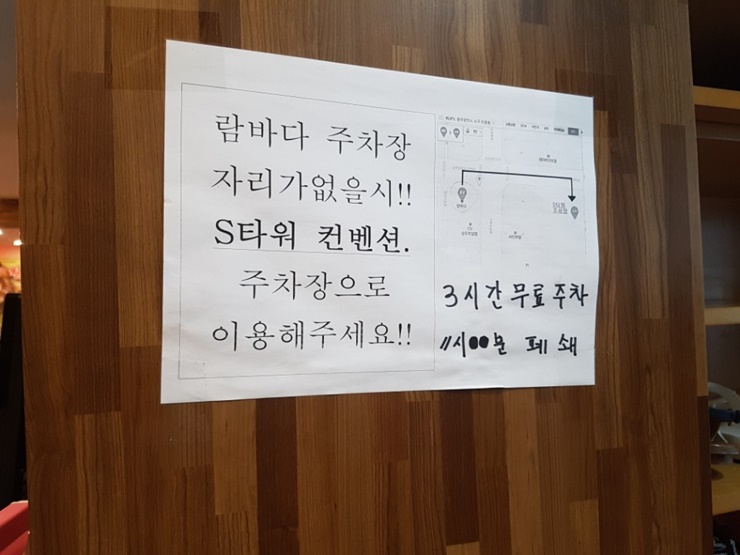 람바다 주차장
자리가없을시!!
S타워 컨벤션.
주차장으로
이용해주세요!!
3시간 무료 주차
11시00분 폐쇄